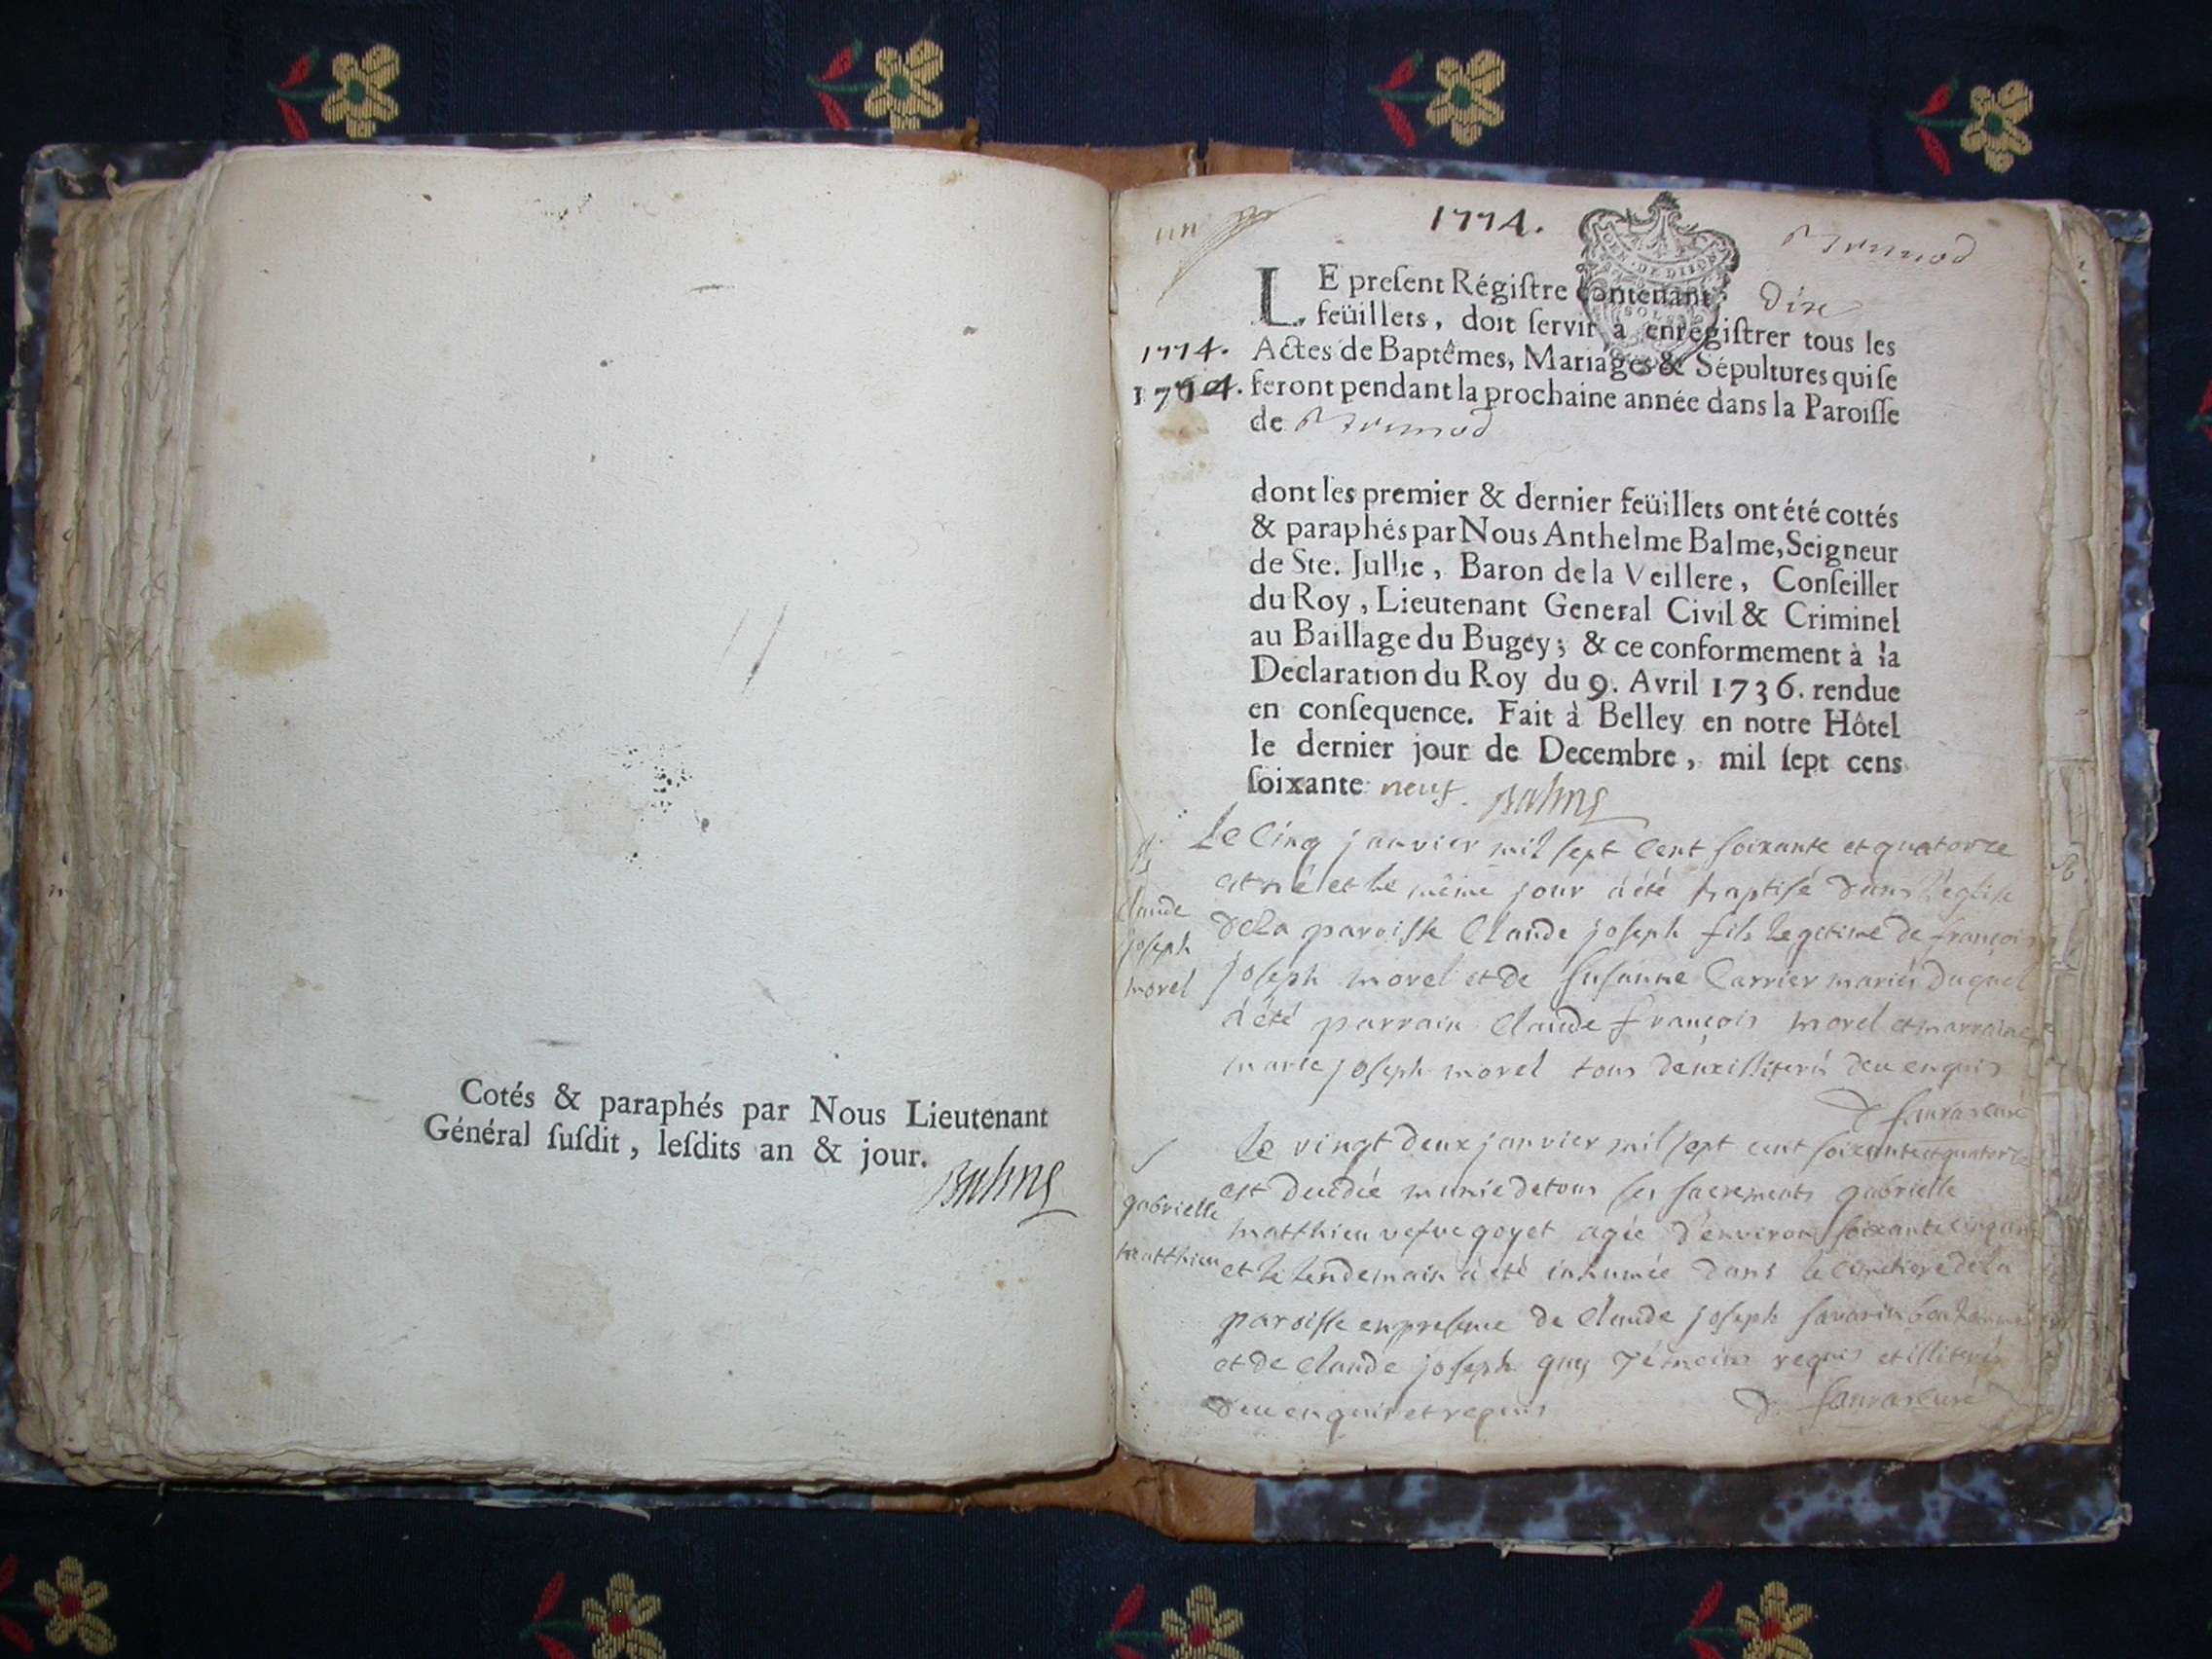 Cotés & paraphés par Nous Lieutenant
Général ſuſdit, leſdits an & jour.
Balme
un
1774.
Brenod
LE preſent Régiſtre contenant dix
feüillets, doit ſervir à enregiſtrer tous les
1774. Actes de Baptêmes, Mariages & Sépultures qui ſe
1774. feront pendant la prochaine année dans la Paroiſſe
de Brenod
dont les premier & dernier feüillets ont été cottés
& paraphés par Nous Anthelme Balme, Seigneur
de Ste. Jullie, Baron de la Veillere, Conſeiller
du Roy, Lieutenant General Civil & Criminel
au Baillage du Bugey; & ce conformement à la
Declaration du Roy du 9. Avril 1736. rendue
en conſequence. Fait à Belley en notre Hôtel
le dernier jour de Decembre, mil ſept cens
ſoixante neuf. Balme
Le cinq janvier mil ſept cent ſoixante et quatorze
et né et le même jour a été baptiſé dans l'egliſe
claude
de la paroiſſe Claude joſeph fils legitime de françois
joſeph
morel
joſeph morel et de Suſanne Carrier mariés duquel
a été parrain Claude françois morel et marraine
marie joſeph morel tous deux illiterés de ce enquis
Le vingt deux janvier mil ſept cent ſoixante et quatorze
est decedée munie de tous ſes ſacrements gabrielle
gabrielle
matthieu vefve goyet agée d'environ ſoixante cinq ans
matthieu
et le lendemain a été inhumée dans le cimetiere de la
paroiſſe en preſence de Claude joſeph ſavarin
et de Claude joſeph guy témoins requis et illiterés
de ce enquis et requis